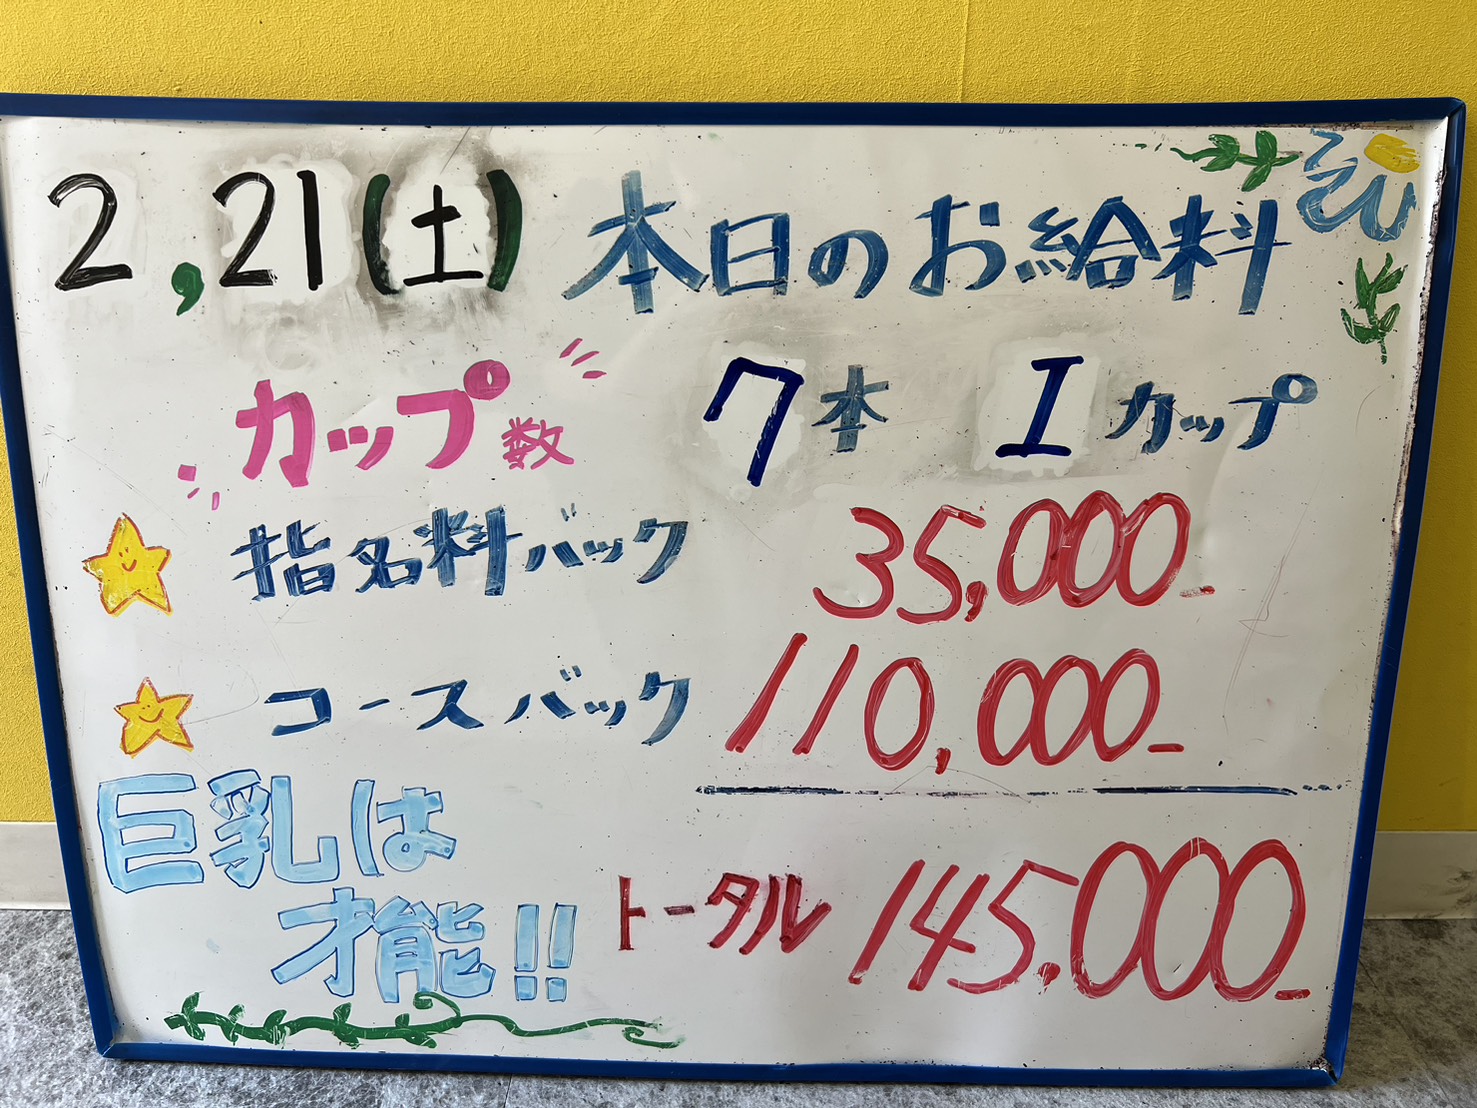 2,21(土) 本日のお給料
カップ数 7本 Iカップ
指名料バック 35,000-
コースバック 110,000-
巨乳は
才能!!
トータル 145.000-